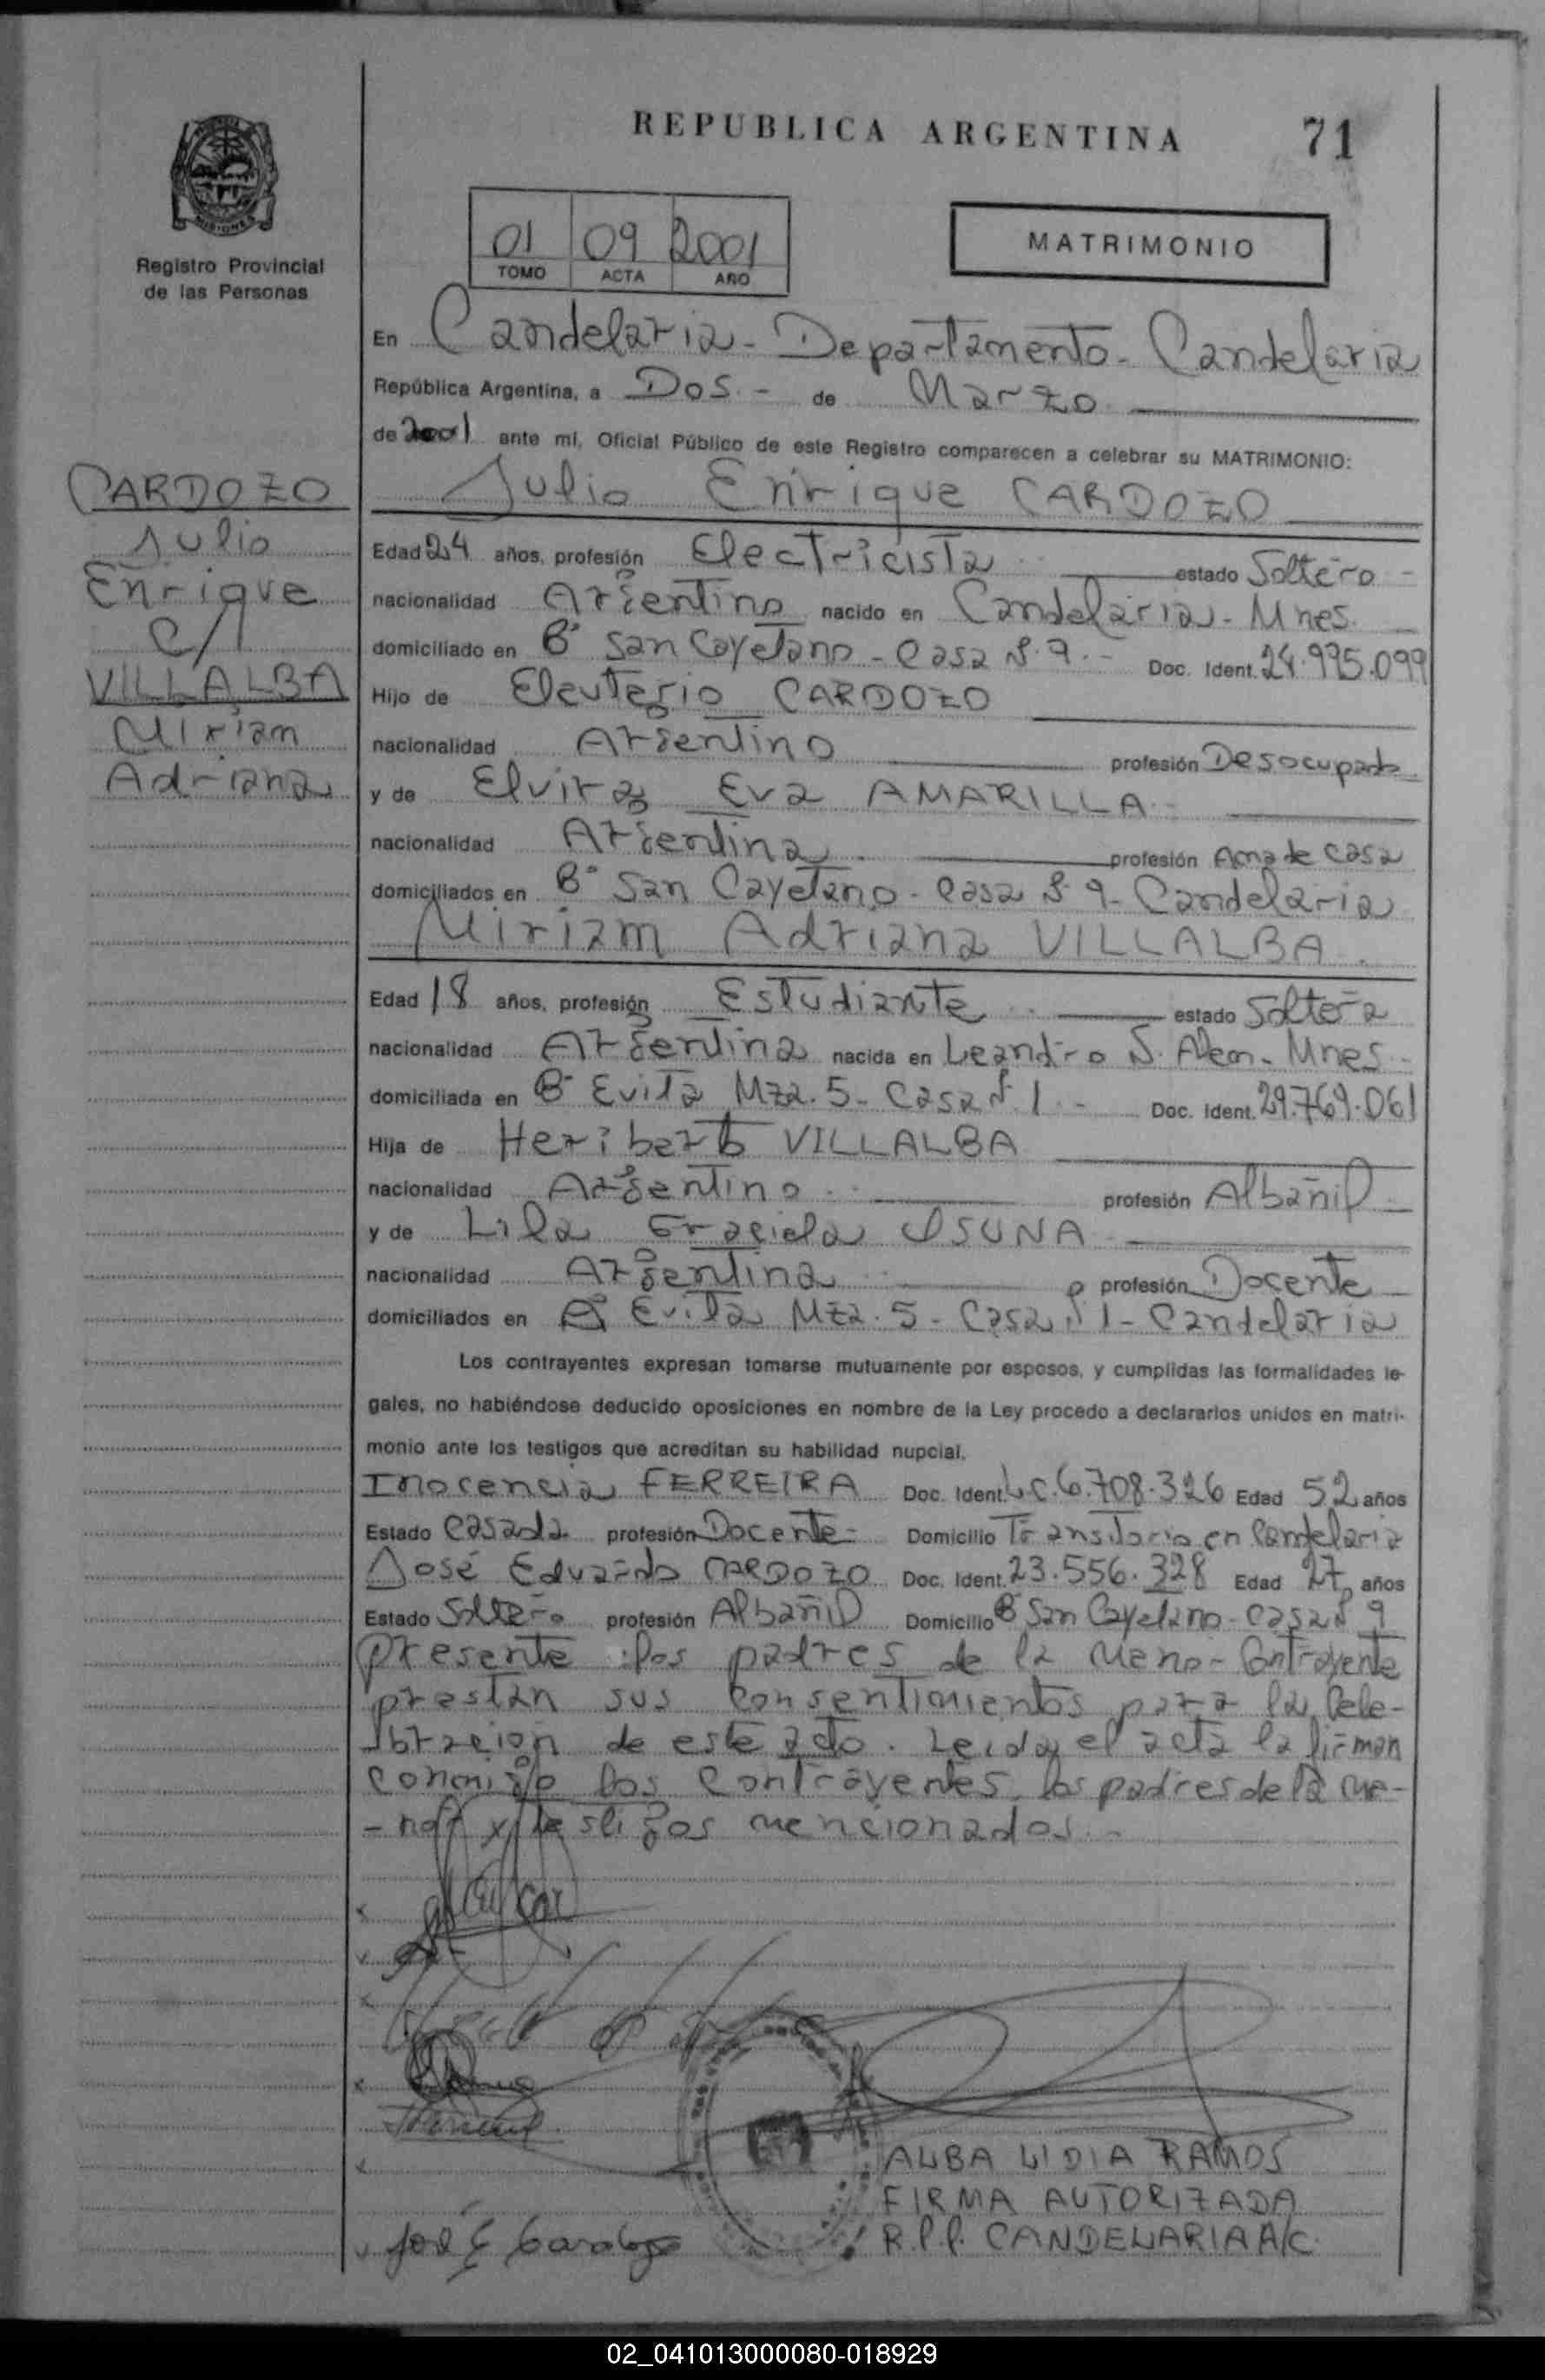 REPUBLICA ARGENTINA 71
MISIONES
Registro Provincial
de las Personas
01 09 2001
TOMO ACTA AÑO
MATRIMONIO
En Candelaria - Departamento - Candelaria
República Argentina, a Dos.- de Marzo
de 2001 ante mí, Oficial Público de este Registro comparecen a celebrar su MATRIMONIO:
CARDOZO
Julio
Enrique
c/
VILLALBA
Miriam
Adriana
Julio Enrique CARDOZO
Edad 24 años, profesión Electricista estado Soltero -
nacionalidad Argentino nacido en Candelaria - Mnes.
domiciliado en B° San Cayetano - Casa N° 9.- Doc. Ident. 24.995.099
Hijo de Eleuterio CARDOZO
nacionalidad Argentino profesión Desocupado
y de Elvira Eva AMARILLA
nacionalidad Argentina profesión Ama de casa
domiciliados en B° San Cayetano - Casa N° 9 - Candelaria
Miriam Adriana VILLALBA
Edad 18 años, profesión Estudiante estado Soltera
nacionalidad Argentina nacida en Leandro N. Alem - Mnes -
domiciliada en B° Evita Mza. 5 - Casa N° 1.- Doc. Ident. 29.769.061
Hija de Heriberto VILLALBA
nacionalidad Argentino profesión Albañil
y de Lila Graciela OSUNA
nacionalidad Argentina profesión Docente
domiciliados en B° Evita Mza. 5 - Casa N° 1 - Candelaria
Los contrayentes expresan tomarse mutuamente por esposos, y cumplidas las formalidades le-
gales, no habiéndose deducido oposiciones en nombre de la Ley procedo a declararlos unidos en matri-
monio ante los testigos que acreditan su habilidad nupcial.
Inocencia FERREIRA Doc. Ident. L.C. 6.708.326 Edad 52 años
Estado Casada profesión Docente - Domicilio Transitorio en Candelaria
José Eduardo CARDOZO Doc. Ident. 23.556.328 Edad 27 años
Estado Soltero profesión Albañil Domicilio B° San Cayetano - casa N° 9
Presente los padres de la menor Contrayente
prestan sus consentimientos para la Cele-
bración de este acto. Leida el acta la firman
conmigo los contrayentes, los padres de la me-
- nor y testigos mencionados.-
José E Cardozo
ALBA LIDIA RAMOS
FIRMA AUTORIZADA
R.P.P. CANDELARIA A/C
02_041013000080-018929